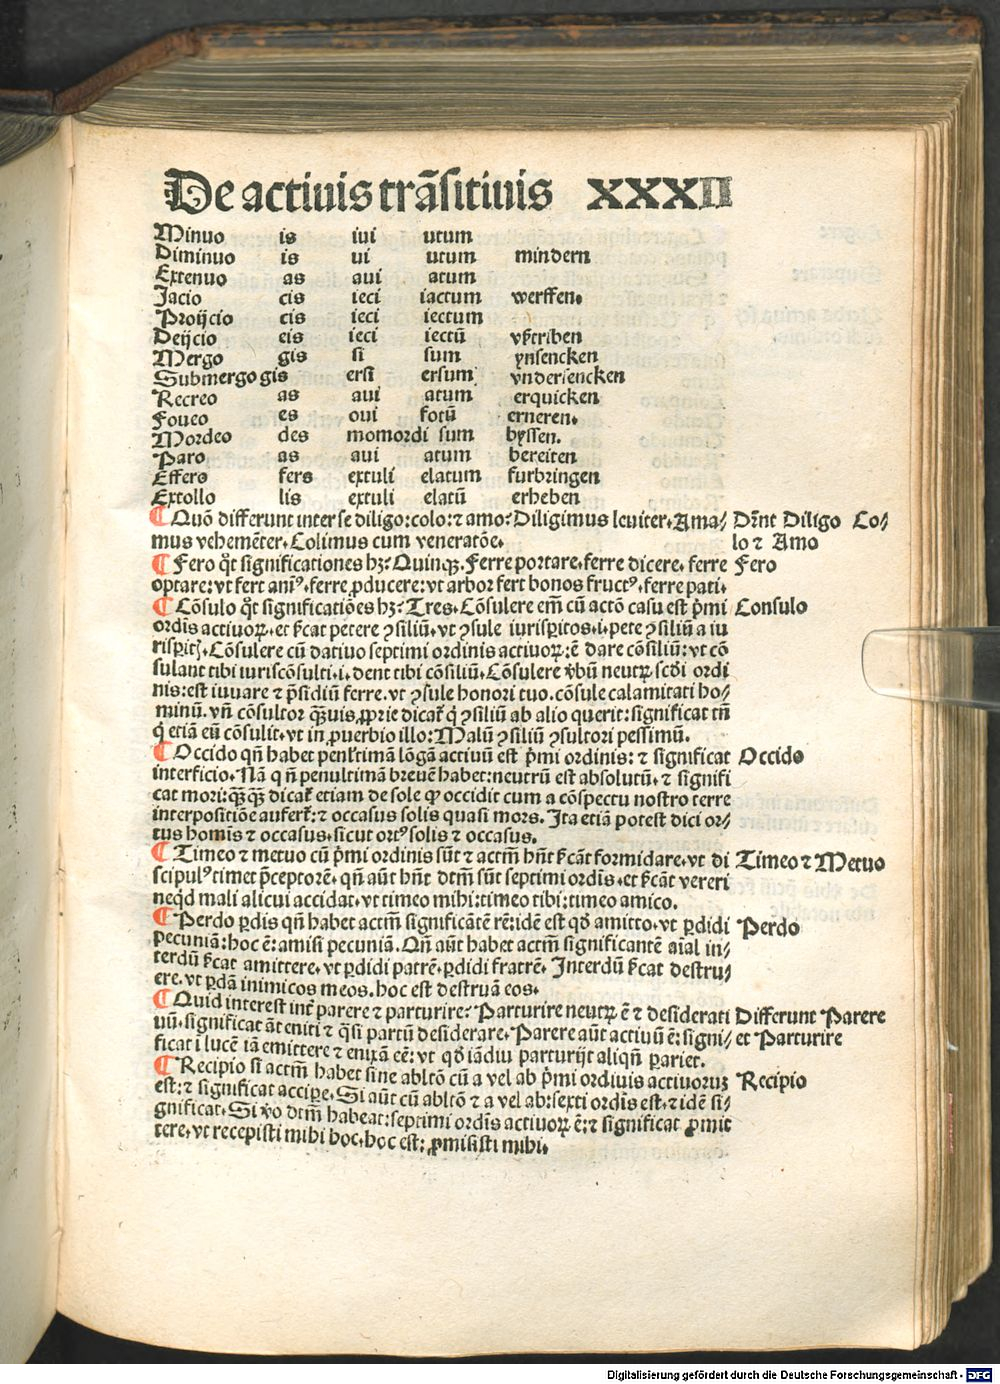 De actiuis trãsitiuis XXXII
Minuo is iui utum
Diminuo is ui utum mindern
Extenuo as aui atum
Jacio cis ieci iactum werffen.
Proijcio cis ieci iectum
Deijcio eis ieci iectũ vẽtriben
Mergo gis si sum ynsencken
Submergo gis ersi ersum vndersencken
Recreo as aui atum erquicken
Foueo es oui fotũ erneren.
Mordeo des momordi sum byssen.
Paro as aui atum bereiten
Effero fers extuli elatum furbringen
Extollo lis extuli elatũ erheben
¶ Quõ differunt inter se diligo: colo: ⁊ amo? Diligimus leuiter. Ama/ Dr̃nt Diligo Co/
mus vehemẽter. Colimus cum veneratõe. lo ⁊ Amo
¶ Fero q̃t significationes hꝫ? Quinqꝫ. Ferre portare. ferre dicere. ferre Fero
optare: vt fert anim⁹. ferre ꝓducere: vt arbor fert bonos fruct⁹. ferre pati.
¶ Cõsulo q̃t significatiões hꝫ? Tres. Cõsulere em̃ cũ actõ casu est p̃mi Consulo
ordĩs actiuoꝝ. et s̃cat petere ꝯsiliũ. vt ꝯsule iurisꝑitos. i. pete ꝯsiliũ a iu
risꝑitꝭ. Cõsulere cũ datiuo septimi ordinis actiuoꝝ: ẽ dare cõsiliũ: vt cõ
sulant tibi iuriscõsulti. i. dent tibi cõsiliũ. Cõsulere v̾bũ neutꝝ scḋi ordi
nis: est iuuare ⁊ p̃sidiũ ferre. vt ꝯsule honori tuo. cõsule calamitati ho/
minũ. vñ cõsultor qꝫuis ꝓprie dicat̃ q̃ ꝯsiliũ ab alio querit: significat tñ
q̃ etiã eũ cõsulit. vt in ꝓuerbio illo: Malũ ꝯsiliũ ꝯsultori pessimũ.
¶ Occido qñ habet penl̃timã lõgã actiuũ est p̃mi ordinis: ⁊ significat Occido
interficio. Nã q ñ penultimã breuẽ habet: neutrũ est absolutũ. ⁊ signifi
cat mori: qꝫqꝫ dicat̃ etiam de sole ꝙ occidit cum a cõspectu nostro terre
interpositiõe aufert̃: ⁊ occasus solis quasi mors. Ita etiã potest dici or/
tus homis ⁊ occasus. sicut ort⁹ solis ⁊ occasus.
¶ Timeo ⁊ metuo cũ p̃mi ordinis sũt ⁊ actm̃ hñt s̃cãt formidare. vt di Timeo ⁊ Metuo
scipul⁹ timet p̃ceptorẽ. qñ aũt hñt dtm̃ sũt septimi ordĩs. et s̃cãt vereri
neq̃d mali alicui accidat. vt timeo mihi: timeo tibi: timeo amico.
¶ Perdo ꝑdis qñ habet actm̃ significãtẽ rẽ: idẽ est qḋ amitto. vt ꝑdidi Perdo
pecuniã: hoc ẽ: amisi pecuniã. Qñ aũt habet actm̃ significantẽ aĩal in/
terdũ s̃cat amittere. vt ꝑdidi patrẽ. ꝑdidi fratrẽ. Interdũ s̃cat destru/
ere. vt ꝑdã inimicos meos. hoc est destruã eos.
¶ Quid interest int̃ parere ⁊ parturire? Parturire neutꝝ ẽ ⁊ desiderati Differunt Parere
uũ. significat ãt eniti ⁊ q̃si partũ desiderare. Parere aũt actiuũ ẽ: signi/ et Parturire
ficat i lucẽ iã emittere ⁊ enixã eẽ: vt qḋ iãdiu parturijt aliqñ pariet.
¶ Recipio si actm̃ habet sine abltõ cũ a vel ab p̃mi ordiuis actiuorũ Recipio
est: ⁊ significat accipe. Si aũt cũ abltõ ⁊ a vel ab: sexti ordĩs est. ⁊ idẽ si/
gnificat. Si v̾o dtm̃ habeat: septimi ordĩs actiuoꝝ ẽ: ⁊ significat ꝓmit
tere. vt recepisti mihi hoc. hoc est: ꝓmisisti mihi.
Digitalisierung gefördert durch die Deutsche Forschungsgemeinschaft - DFG